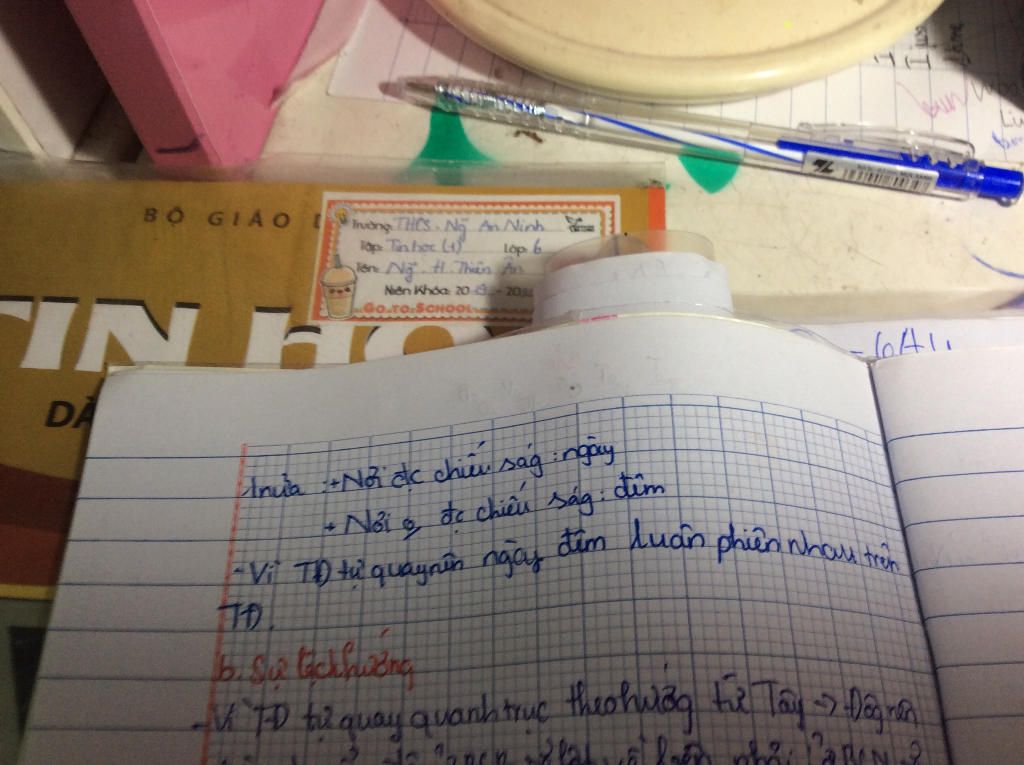 BỘ GIÁO D
Trường: THCS. Ng̃ An Ninh
Tập: Tin học (1) Lớp: 6
Tên: Ng̃. H. Thiên Ân
Niên Khóa: 20 - 20
GO TO SCHOOL
TIN HỌ
DÀ
- 6A11
1 nửa : + Nơi đc chiếu ság : ngày
+ Nơi đc chiếu ság : đêm
- Vì TĐ tự quay nên ngày đêm luân phiên nhau trên
TĐ.
b. Sự lệch hướng
- Vì TĐ tự quay quanh trục theo hướng từ Tây → Đôg nên